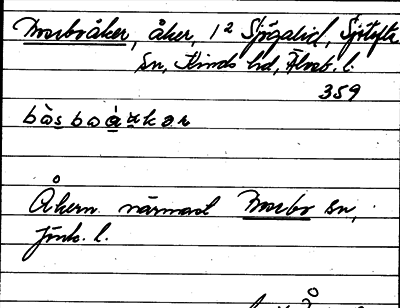 Boseboåker, åker, 1² Sjögalid, Sjötofta
sn, Kinds hd, Älvsb. l.
359
Åkern närmast Bosebo sn,
Jönk. l.